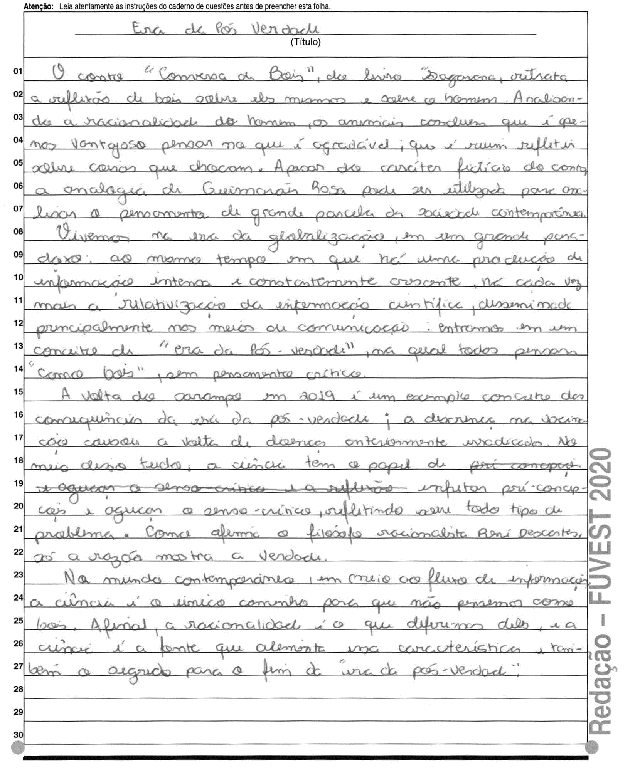 Atenção: Leia atentamente as instruções do caderno de questões antes de preencher esta folha.
Era da Pós Verdade
(Título)
01 O conto "Conversa de Bois", do livro Sagarana, retrata
02 a reflexão de bois sobre eles mesmos e sobre o homem. Analisan-
03 do a racionalidade do homem, os animais concluem que é ape-
04 nas vantajoso pensar no que é agradável; que é ruim refletir
05 sobre coisas que chocam. Apesar do caráter fictício do conto,
06 a analogia de Guimarães Rosa pode ser utilizada para ana-
07 lisar o pensamento de grande parcela da sociedade contemporânea.
08 Vivemos na era da globalização, em um grande para-
09 doxo: ao mesmo tempo em que há uma produção de
10 informação intensa e constantemente crescente, há cada vez
11 mais a relativização da informação científica, disseminada
12 principalmente nos meios de comunicação: entramos em um
13 conceito de "era da Pós-verdade", na qual todos pensam
14 "como bois", sem pensamento crítico.
15 A volta do sarampo em 2019 é um exemplo concreto das
16 consequências da era da pós-verdade; a descrença na vacina-
17 ção causou a volta de doenças anteriormente erradicadas. No
18 meio disso tudo, a ciência tem o papel de pré concepções
19 e aguçar o senso-crítico e a reflexão enfrentar pré-concep-
20 ções e aguçar o senso-crítico, refletindo sobre todo tipo de
21 problema. Como afirma o filósofo racionalista René Descartes,
22 só a razão mostra a verdade.
23 No mundo contemporâneo, em meio ao fluxo de informações
24 a ciência é o único caminho para que não pensemos como
25 bois. Afinal, a racionalidade é o que diferimos deles, e a
26 ciência é a fonte que alimenta essa característica e tam-
27 bém o segredo para o fim da "era da pós-verdade".
28
29
30
Redação – FUVEST 2020